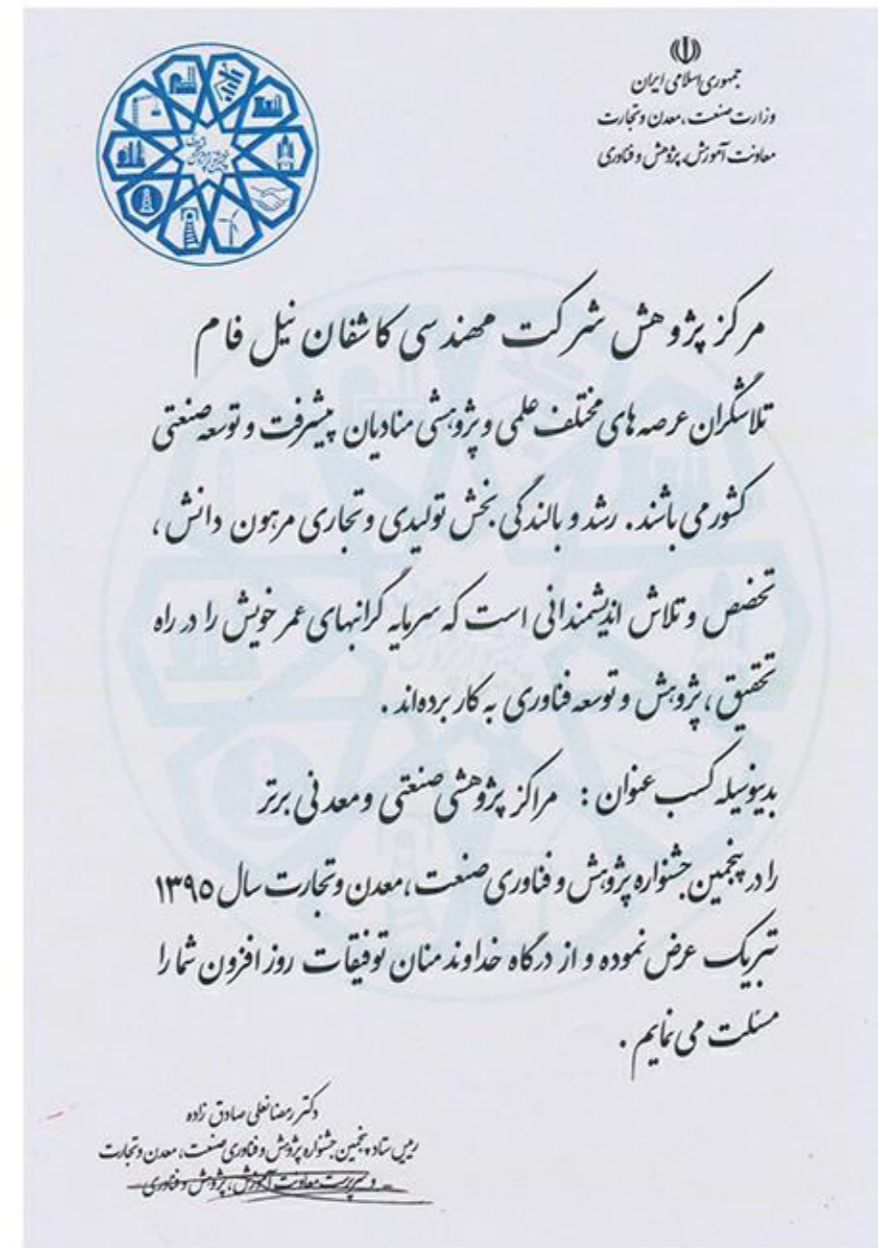 جمهوری اسلامی ایران
وزارت صنعت، معدن و تجارت
معاونت آموزش، پژوهش و فناوری
مرکز پژوهش شرکت مهندسی کاشفان نیل فام
تلاشگران عرصه های مختلف علمی و پژوهشی منادیان پیشرفت و توسعه صنعتی
کشور می باشند. رشد و بالندگی بخش تولیدی و تجاری مرهون دانش،
تخصص و تلاش اندیشمندانی است که سرمایه گرانبهای عمر خویش را در راه
تحقیق، پژوهش و توسعه فناوری به کار برده‌اند.
بدینوسیله کسب عنوان: مراکز پژوهشی صنعتی و معدنی برتر
را در پنجمین جشنواره پژوهش و فناوری صنعت، معدن و تجارت سال ۱۳۹۵
تبریک عرض نموده و از درگاه خداوند منان توفیقات روز افزون شما را
مسئلت می نمایم.
دکتر رمضانعلی صادق زاده
رییس ستاد پنجمین جشنواره پژوهش و فناوری صنعت، معدن و تجارت
و سرپرست معاونت آموزش، پژوهش و فناوری